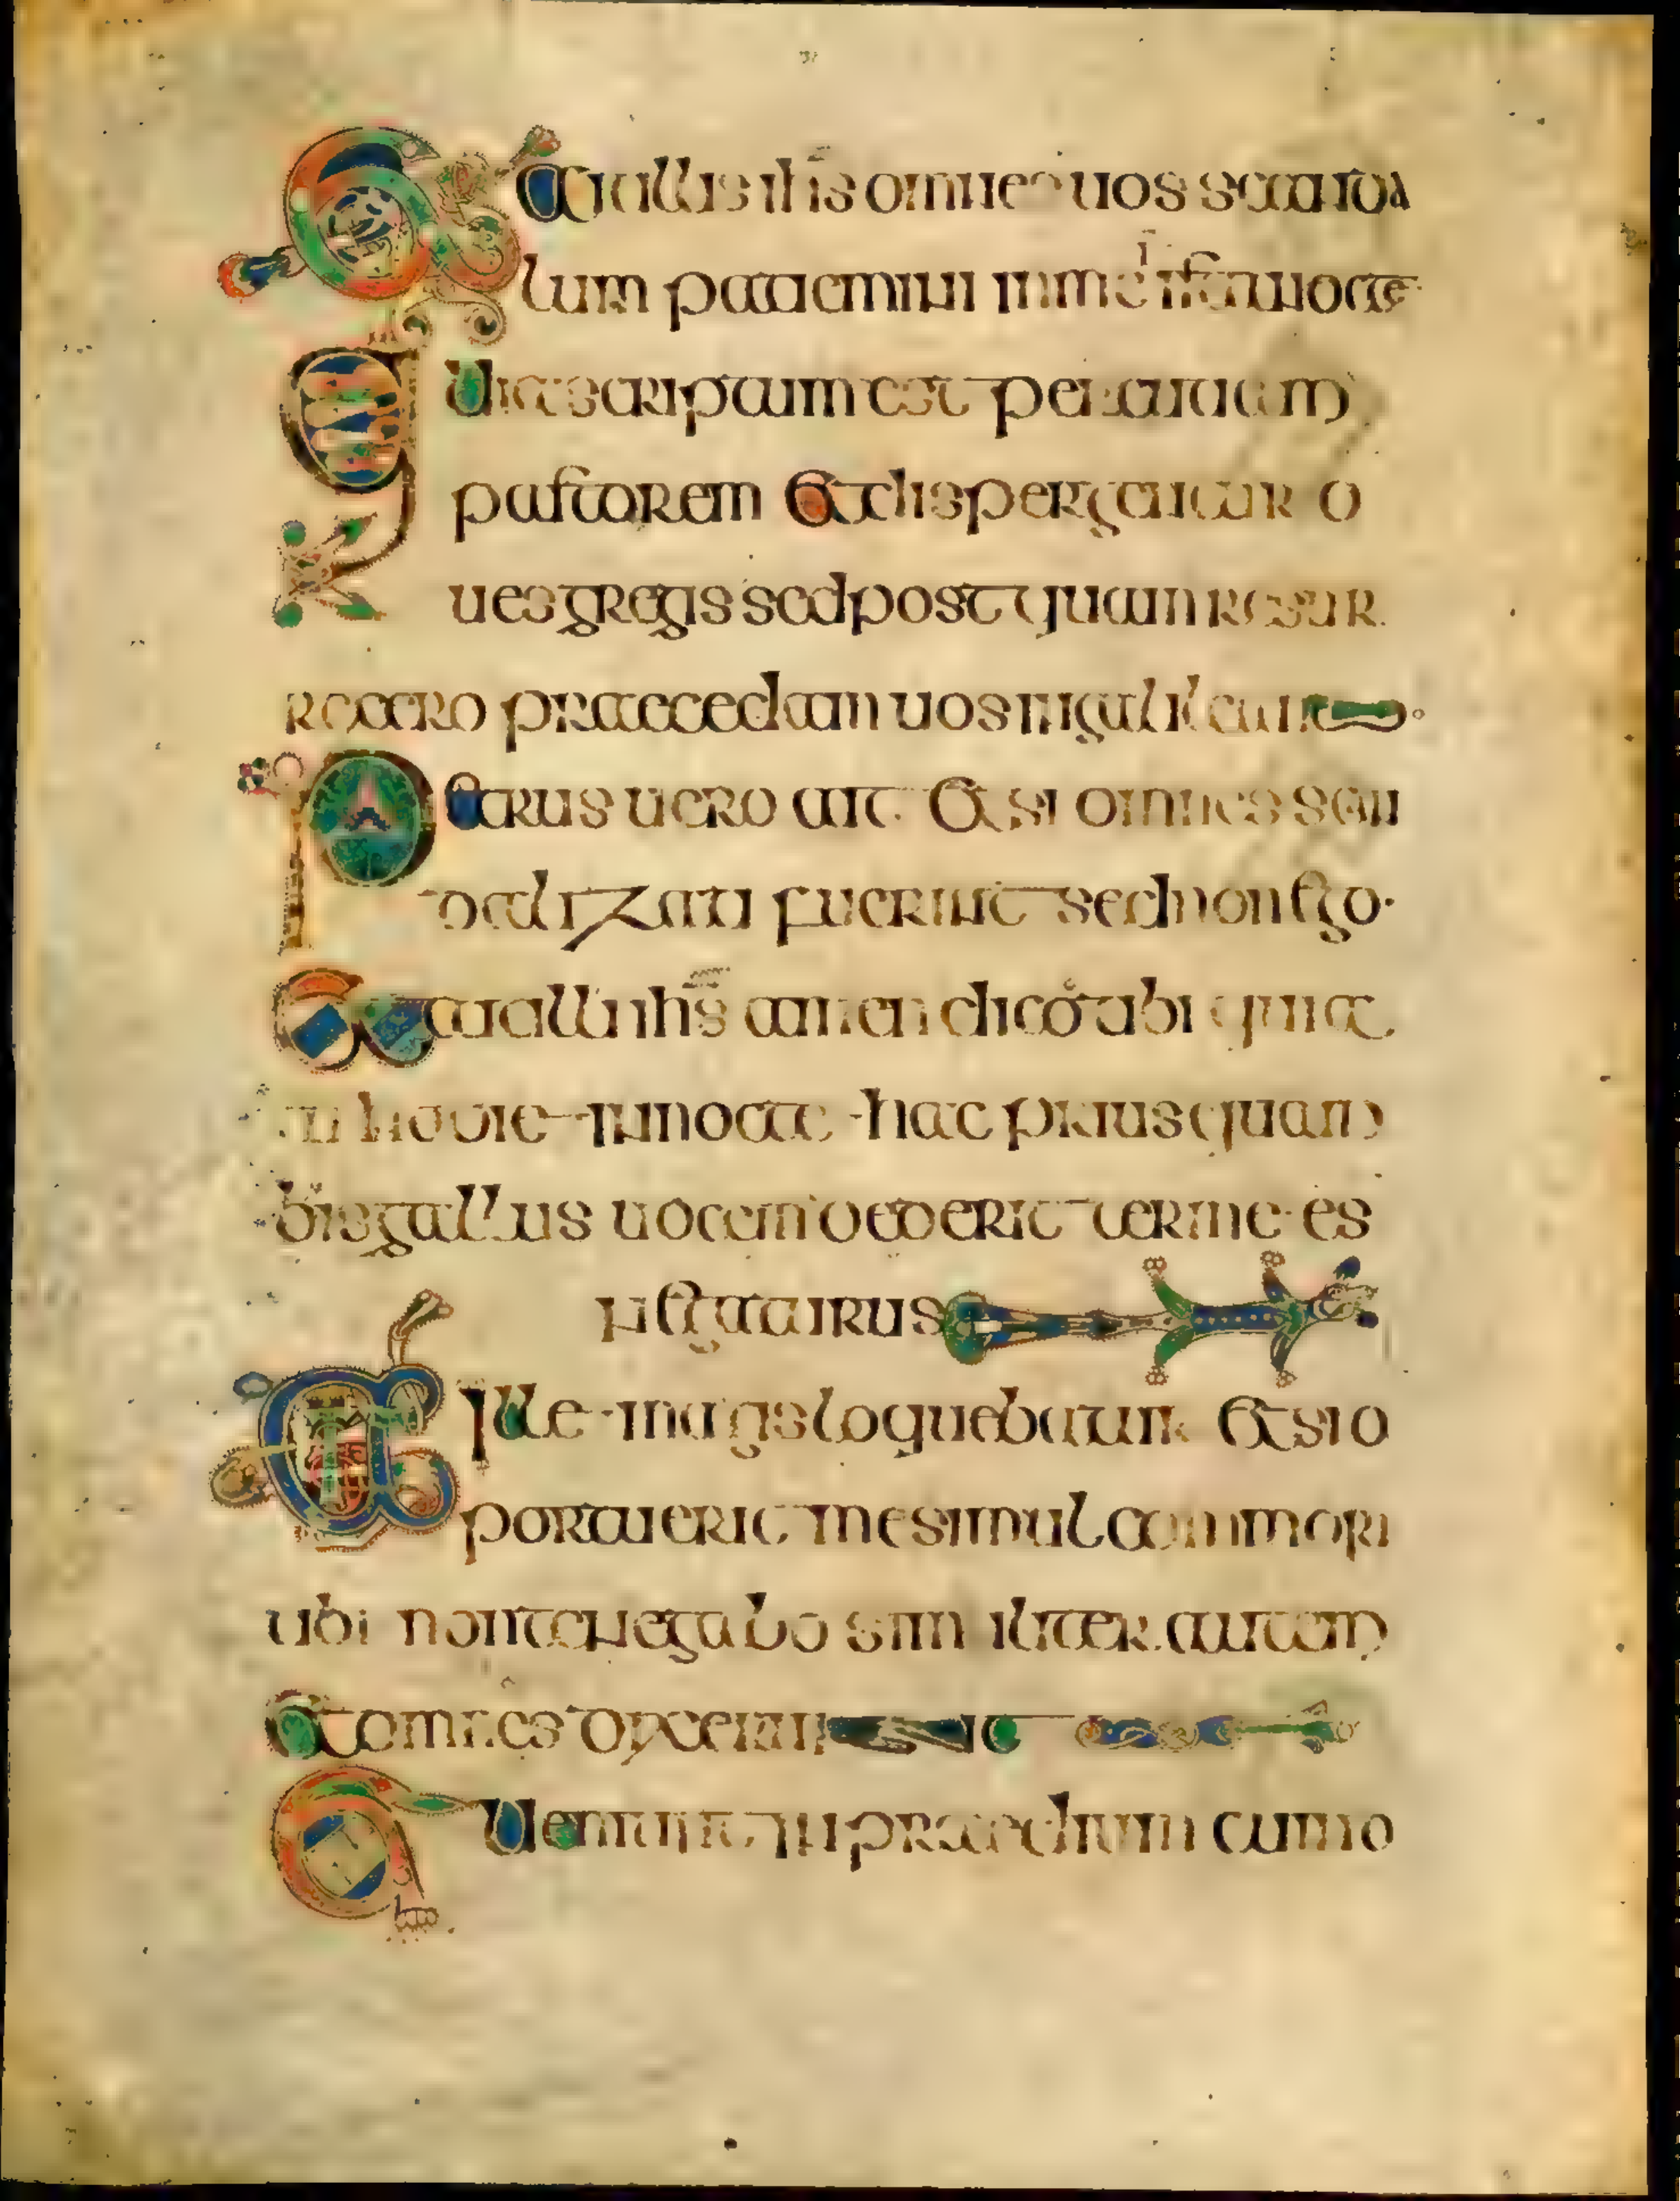 Et ait illis ihs omnes uos scanda
lum patiemini in me in ista nocte
Quia scriptum est percutiam
pastorem et dispergentur o
ues gregis sed post quam resur
rexero praecedam uos in galileam
Petrus uero ait et si omnes scan
dalizati fuerint sed non ego
Et ait illi ihs amen dico tibi quia
tu hodie in nocte hac prius quam
bis gallus uocem dederit ter me es
negaturus
At ille magis loquebatur et si o
portuerit me simul commori
tibi non te negabo similiter autem
et omnes dixerunt
Et ueniunt in praedium cui no